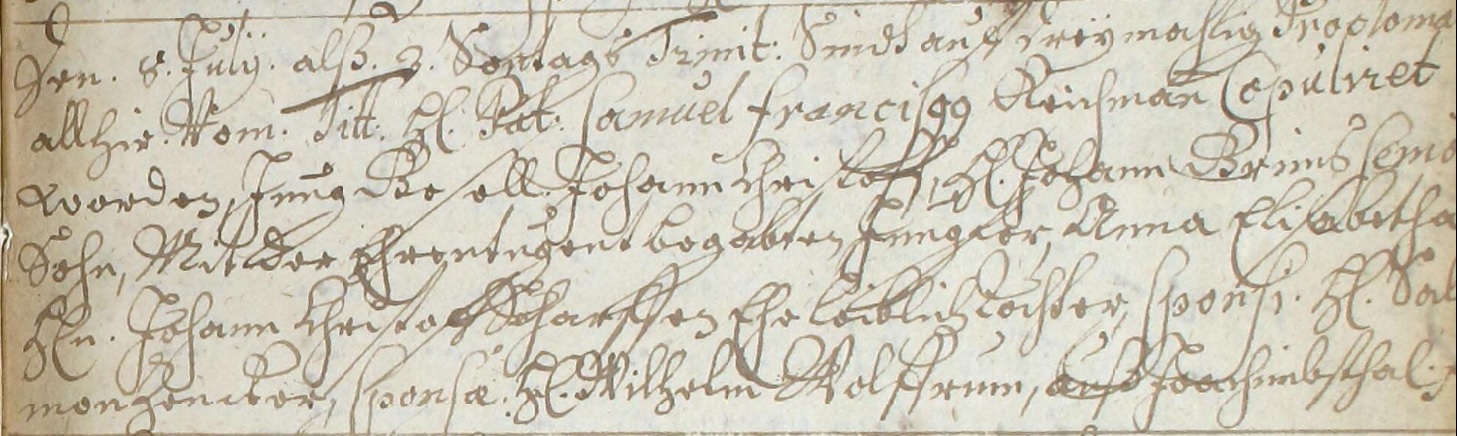 Den. 8. July. alß. 3. Sontags Trinit: Sindt auff dreymahlig Proclama
allhir Vom. Titt. H: Pat: Samuel Francisco Reichman Copuliret
worden, Jung Gesell Johann Christoff, H. Johann Grims
Sohn, Mit der Ehrentugent begabten Jungfer, Anna Elisabetha
Hn. Johann Christoff Scharffen Ehe leiblich Tochter, sponsi. H. Sal
mon, sponsæ. H. Wilhelm Wolffrum, auß Joachimbsthal.